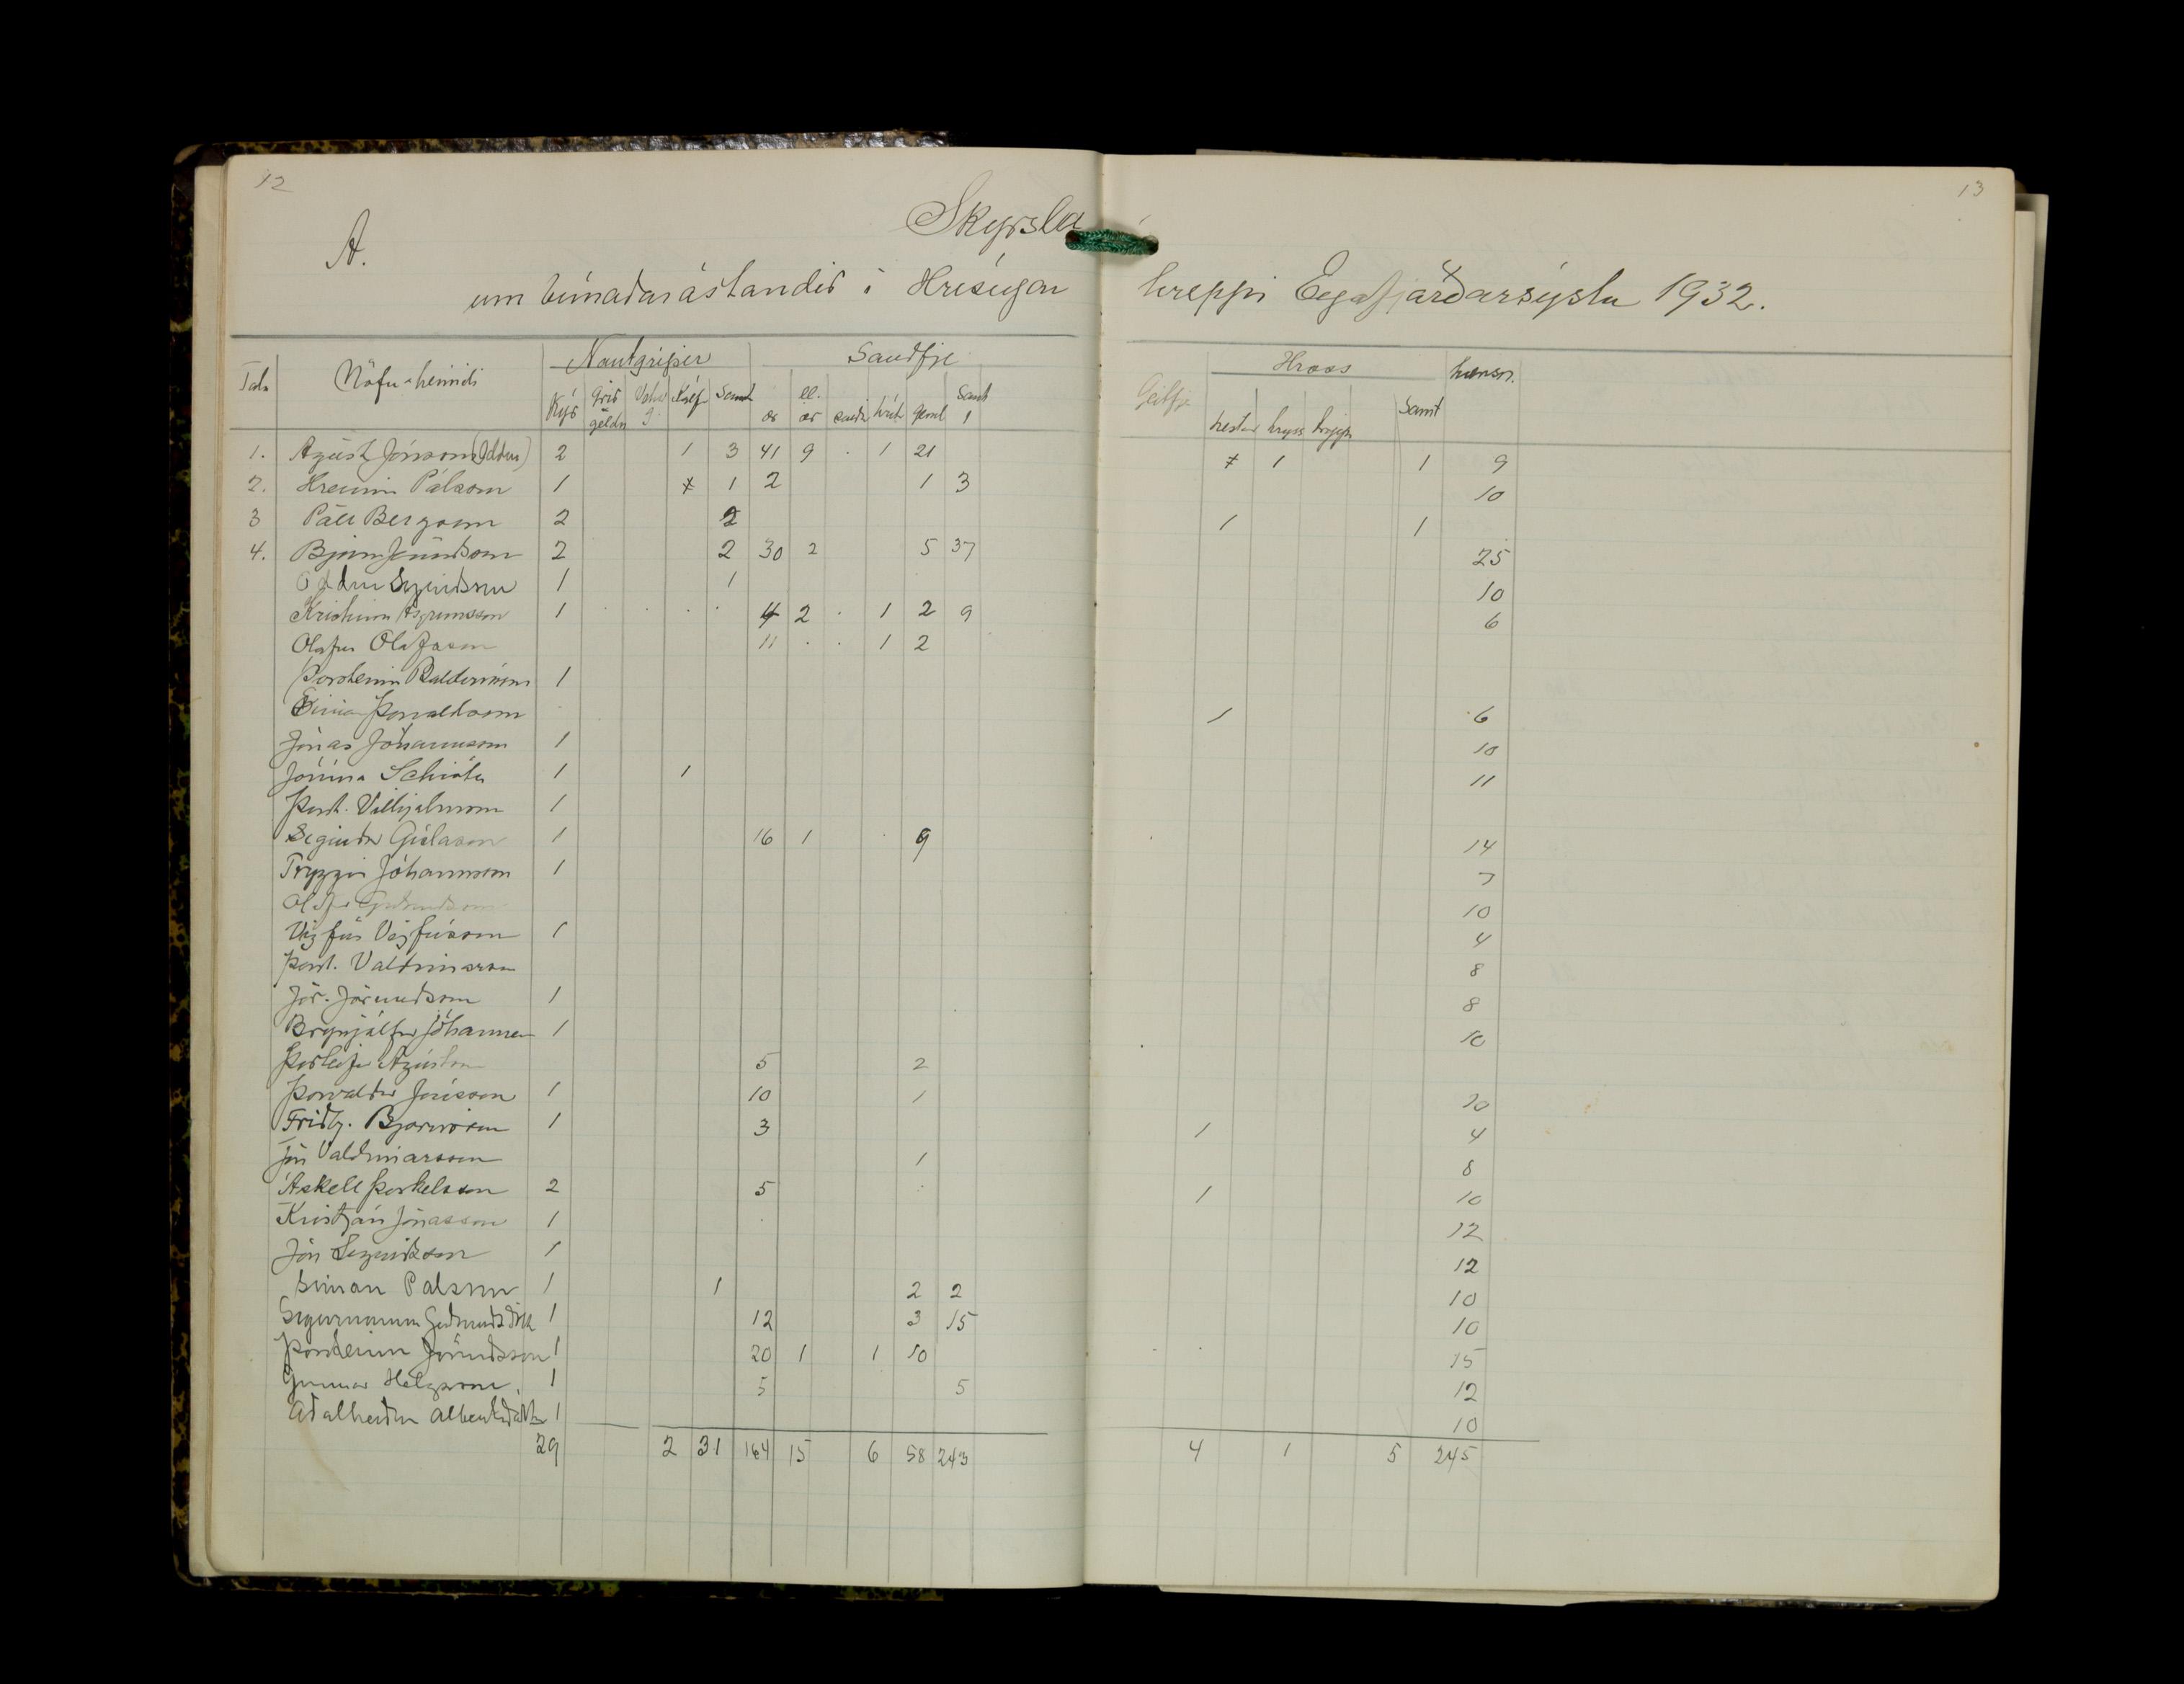 12
13
A.
Skýrsla
um búnaðarástandið í Hríseyjar hreppi Eyjafjarðarsýslu 1932.
Tala Nöfn heimili Nautgripir Sauðfje Hross hænsn.
Kýr Grið geldn Kálf Samt ær gl. ær sauðir hrút geml Samt 1 Geitfje hestar hryss tryppi Samt
1. Agúst Jónsson 2 1 3 41 9 . 1 21 1 1 9
2. Hreinn Pálsson 1 1 2 1 3 10
3 Páll Bergsson 2 2 1 1
4. Björn Jörundsson 2 2 30 2 5 37 25
Oddur Sigurðsson 1 1 10
Kristinn Asgrímsson 1 4 2 . 1 2 9 6
Olafur Olafsson 11 . . 1 2
Þorsteinn Baldvinsson 1
Þorvaldsson 1 6
Jónas Jóhannsson 1 10
Jónína Schiöth 1 1 11
Þorst. Vilhjálmsson 1
Sigurður Gíslason 1 16 1 9 14
Tryggvi Jóhannsson 1 7
Olafur Guðmundsson 10
Vigfús Vigfússon 1 4
Þorst. Valdimarsson 8
Jör. Jörundsson 1 8
Brynjólfur Jóhannes 1 10
Þorleifur Agústsson 5 2
Þorvaldur Jónsson 1 10 1 20
Friðbj. Björnsson 1 3 1 4
Jón Valdimarsson 1 8
Áskell Þorkelsson 2 5 1 10
Kristján Jónasson 1 12
Jón Sigurðsson 1 12
Símon Pálsson 1 1 2 2 10
Sigurmunna Guðmundsdótt 1 12 3 15 10
Þorsteinn Jörundsson 1 20 1 1 10 15
Gunnar Helgason 1 5 5 12
Aðalheiður Albertsdóttir 1 10
29 2 31 164 15 6 58 243 4 1 5 245